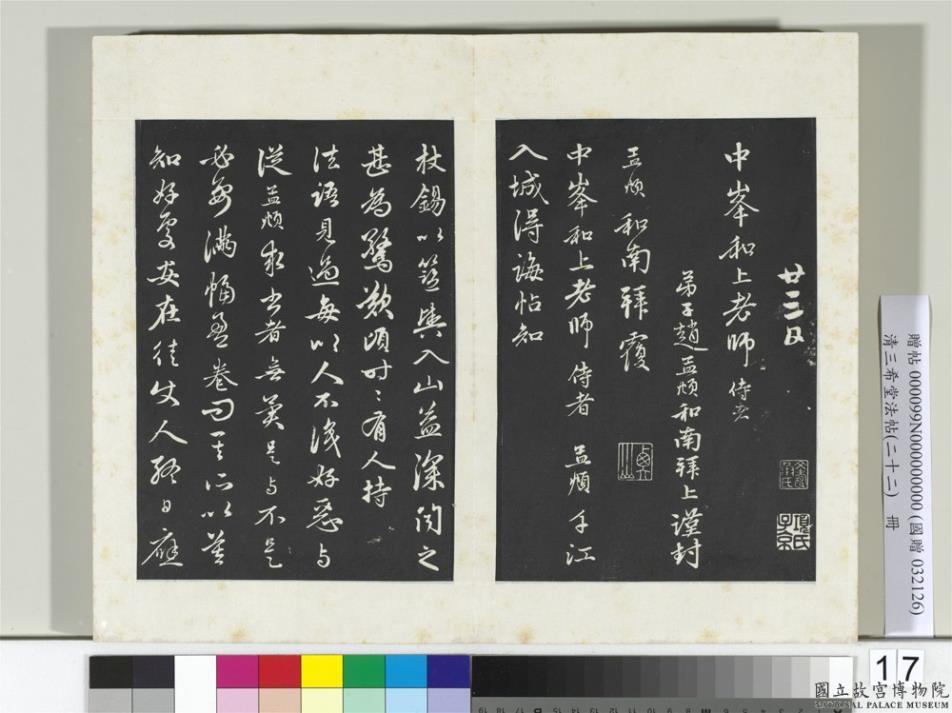 廿三日
中峯和上老師侍者
弟子趙孟頫和南拜上謹封
孟頫和南拜覆
中峯和上老師侍者 孟頫 江
入城得誨帖知
杖錫以籃輿入山益深聞之
甚為驚歎頃時〻有人持
法語見過每以人不識好惡与
從孟頫求書者無異是与不是
必要滿幅盈卷問其所以莫
知好處安在徒使人終日應
項氏子京
贈帖 000099N000000000 (國贈 032126)
清三希堂法帖(二十二) 冊
17
國立故宮博物院
NATIONAL PALACE MUSEUM